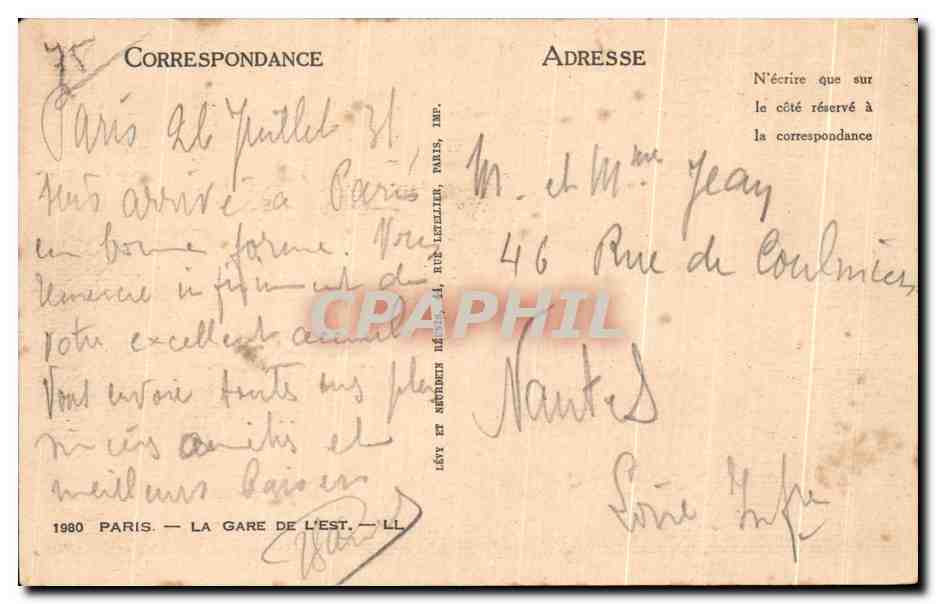 75
CORRESPONDANCE
Paris 26 Juillet 31
arrivé à Paris
en bonne forme. Vous
remercie infiniment de
votre excellent accueil
Vous envoie toutes mes plus
sincères amitiés et
meilleurs baisers
1980 PARIS. — LA GARE DE L'EST. — LL
LÉVY ET NEURDEIN RÉUNIS, 44, RUE LETELLIER, PARIS, IMP.
ADRESSE
N'écrire que sur
le côté réservé à
la correspondance
M. et Mme Jean
46 Rue de Coulmiers
Nantes
Loire Infre
CPAPHIL